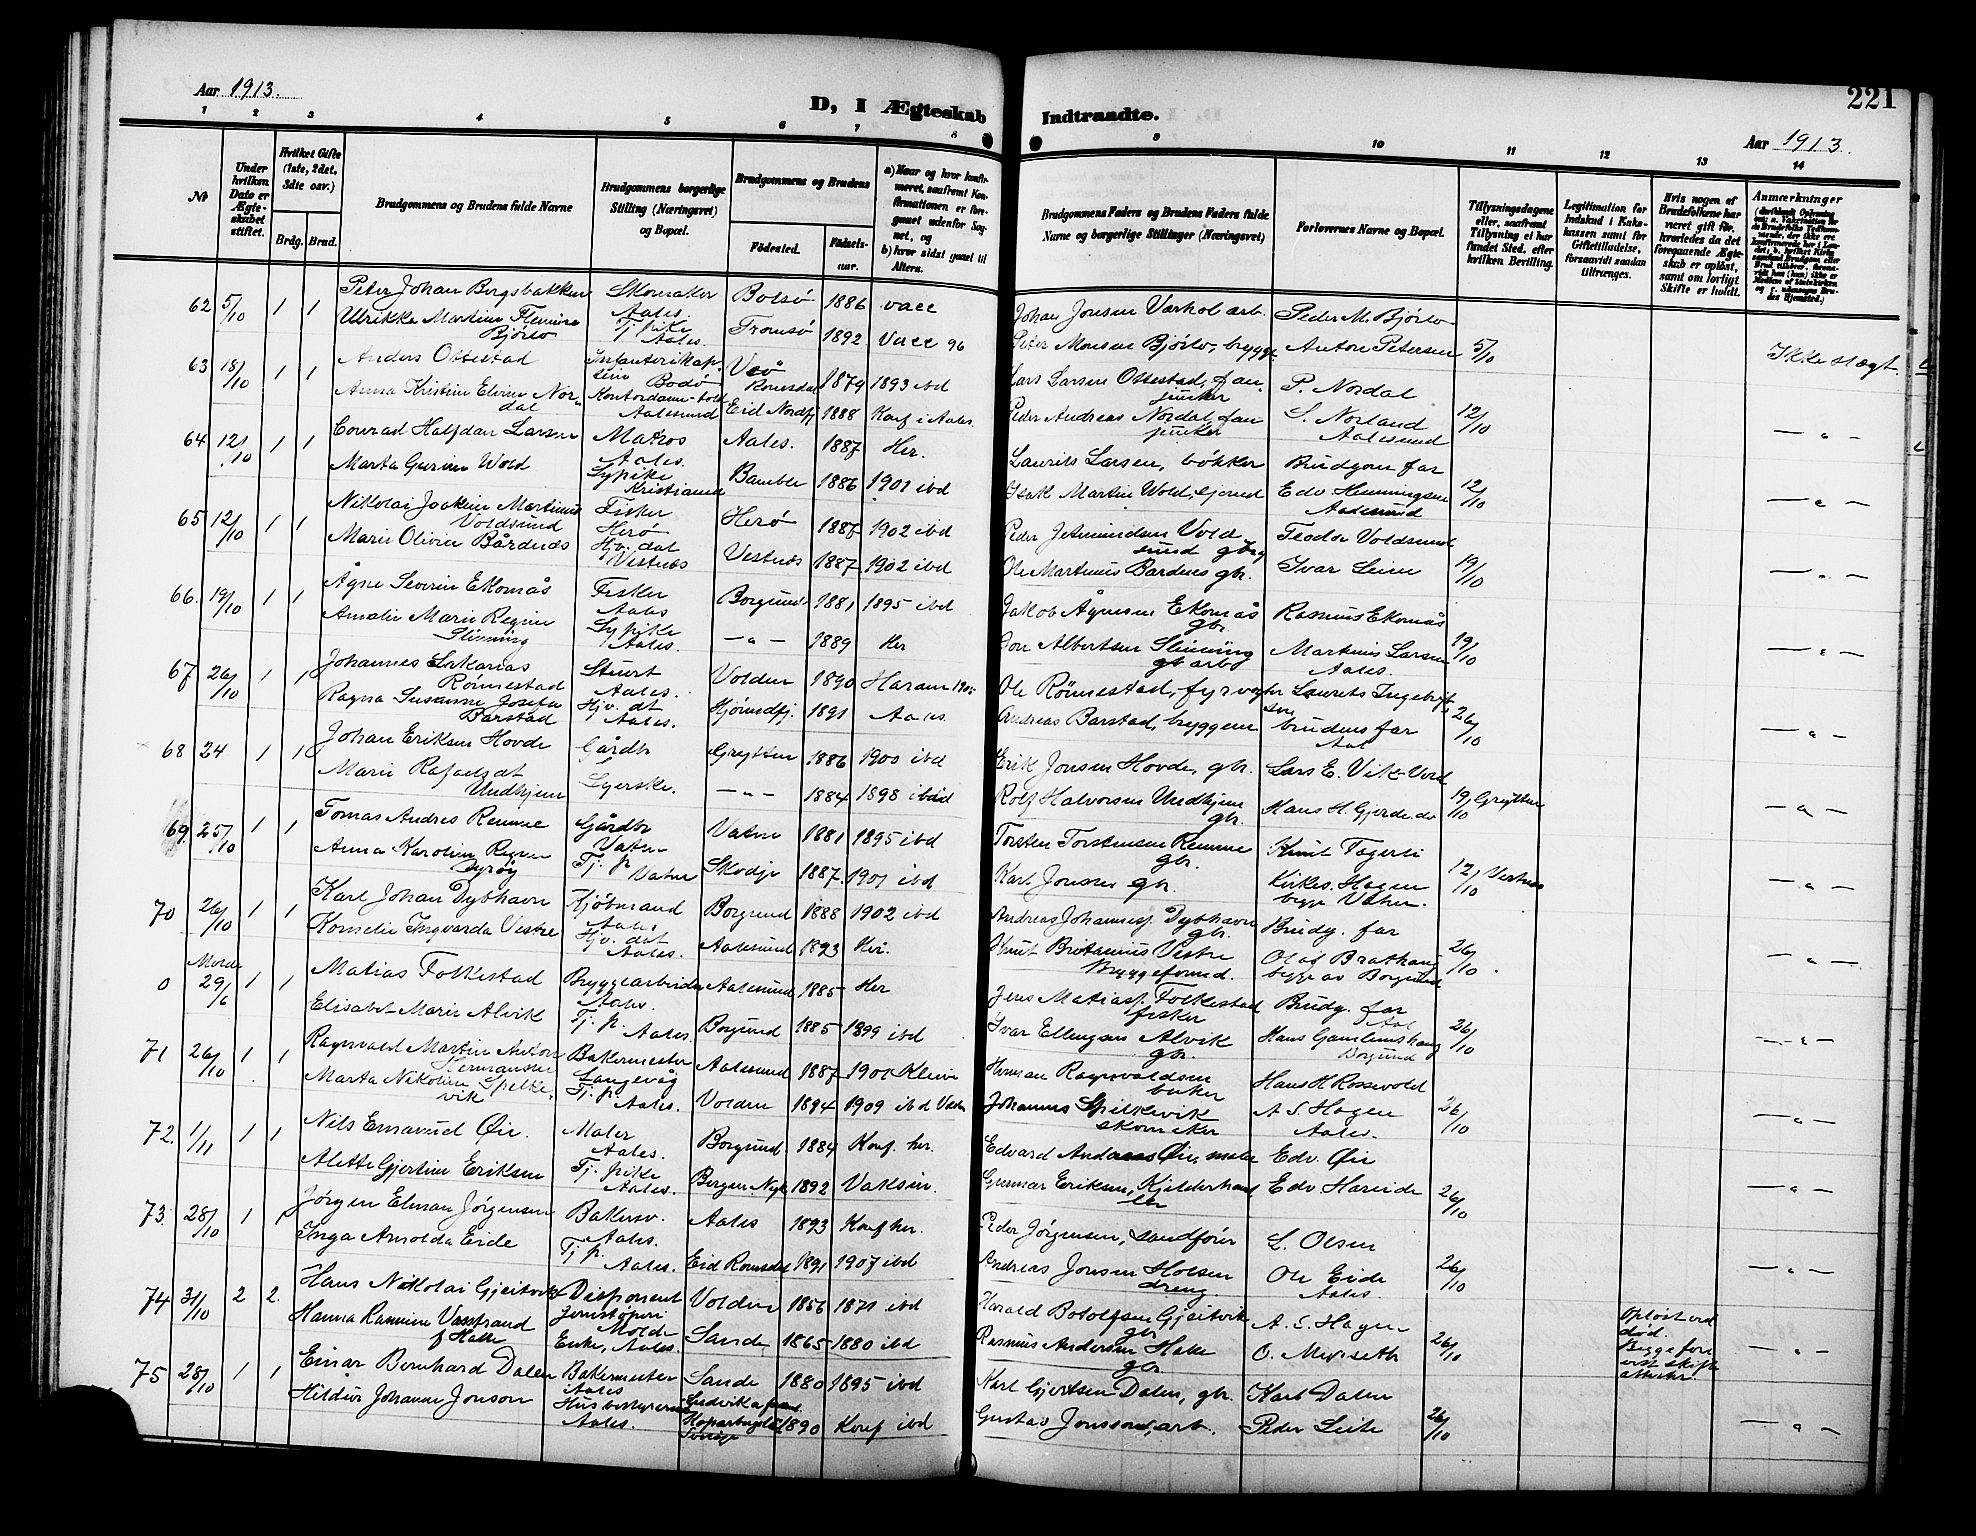 Aar 1913.
D, I Ægteskab
Indtraadte.
221
Aar 1913.
1 2 3 4 5 6 7 8 9 10 11 12 13 14
Nr
Under hvilken Dato er Ægteskabet stiftet.
Hvilket Gifte (1ste, 2det, 3dte osv.)
Brdg. Brud.
Brudgommens og Brudens fulde Navne
Brudgommens borgerlige Stilling (Næringsvei) og Bopæl.
Brudgommens og Brudens
Fødested.
Fødselsaar.
a) Naar og hvor konfirmeret, saafremt Konfirmationen er foregaaet udenfor Sognet, og
b) hvor sidst gaaet til Alters.
Brudgommens Faders og Brudens Faders fulde Navne og borgerlige Stillinger (Næringsvei)
Forlovernes Navne og Bopæl.
Tillysningsdagene eller, saafremt Tillysning ei har fundet Sted, efter hvilken Bevilling.
Legitimation for Indskud i Enkekassen samt for Giftetilladelse, forsaavidt saadan tiltrænges.
Hvis nogen af Brudefolkene har været gift før, hvorledes da det foregaaende Ægteskab er opløst, samt om lovligt Skifte er holdt.
Anmærkninger
62 5/10 1 1 Peter Johan Bergsbakken Skomaker Aales. Bolsø 1886 vacc Johan Jonsen Varhol arb. Peder M. Bjørlo
Ulrikke Martine Flemine Bjørlo Tj. pike Aales. Tromsø 1892 Vacc 96 Peter Monsen Bjørlo, brygge Anton Petersen 5/10 Ikke slegt.
63 18/10 1 1 Anders Ottestad Infanterikaptein Bodø Veø Romsdal 1879 1893 ibd Lars Larsen Ottestad, fanjunker P. Nordal
Anna Kristine Elvine Nordal Kontordame Aalesund Eid Nordfj 1888 Konf i Aales. Peder Andreas Nordal, fanjunker S. Norland Aalesund 12/10 — " —
64 12/10 1 1 Conrad Halfdan Larsen Matros Aales. Aales. 1887 Her. Laurits Larsen, bøkker Brudgom far
Marta Gurine Wold Sypike Kristiansd Bamble 1886 1901 ibd Isak Martin Wold, Edv Henningsen Aalesund 12/10 — " —
65 12/10 1 1 Nikolai Joakim Martinus Voldsund Fisker Herø Herø 1887 1902 ibd Peder Jetmundsen Voldsund gbrg Teodor Voldsund
Marie Olivia Bårdnes Hv. dat Vestnes Vestnes 1887 1902 ibd Ole Martinus Bardnes gbr. Ivar Leien 19/10 — " —
66. 19/10 1 1 Ågne Severin Ekornås Fisker Aales Borgund 1881 1895 ibd Jakob Ågnesen Ekornås gbr. Rasmus Ekornås
Amalie Marie Regine Slinning Sypike Aales. — " — 1889 Her Jon Albertsen Slinning gt arb Martinus Larsen Aales. 19/10 — " —
67 26/10 1 1 Johannes Rønnestad Stuert Aales. Volden 1890 Haram 1905 Ole Rønnestad, fyrvogter Laurits Ingebrigtsen
Ragna Susanne Josefa Barstad Hjv. dt Aales. Hjørundfj. 1891 Aales Andreas Barstad, bryggem brudens far Aal 26/10 — " —
68 24 1 1 Johan Eriksen Hovde Gårdbr Grytten 1886 1900 ibd Erik Jonsen Hovde, gbr. Lars E. Vik Vold
Marie Rafaelsdt Undhjem Syerske. — " — 1884 1898 ibid Rolf Halvorsen Undhjem gbr. Hans H. Gjerde do 19/10 Grytten — " —
69. 25/10 1 1 Tomas Andres Remme Gårdbr Vatne Vatne 1881 1895 ibd Torsten Torstensen Remme gbr. Knut Fagerli
Anna Karoline Regine Dyrøy Tj. p. Vatne Skodje 1887. 1901 ibd Karl Jonsen gbr. Kirkes. Hagen begge Vatne. 12/10 Vestnes — " —
70 26/10 1 1 Karl Johan Dybhavn Kjøbmand Aales. Borgund 1888 1902 ibd Andreas Johannesj. Dybhavn gbr. Brudg. far
Kornelie Ingvarda Vestre Hjv. dat Aales. Aalesund 1893 Her. Knut Brotanius Vestre Byggeformd. Olaf Brathaug begge av Borgund 26/10. — " —
0 Molde 29/6 1 1 Matias Folkestad Bryggearbeider Aales. Aalesund 1885 Her Jens Matiasj. Folkestad fisker Brudg. far Aal
Elisabet Marie Alvik Tj. p. Aales. Borgund 1885 1899 ibd Ivar Ellingsen Alvik gbr. Hans Gamlemshaug Borgund 26/10 — " —
71 26/10 1 1 Ragnvald Martin Anton Hermansen Bakermester Langevåg Aalesund 1887 1901 Kleive Herman Ragnvaldsen baker Hans H Rossevold
Marta Nikoline Spilkevik Tj. p. Aales. Volden 1894 1909 ibd Johannes Spilkevik skomaker A. S. Hagen Aales. 26/10 — " —
72. 1/11 1 1 Nils Emanuel Øie. Maler Aales. Borgund 1884 Konf. her. Edvard Andreas Øie, maler Edv. Øie
Alette Gjertine Eriksen Tj. pike Aales. Bergen Nyk 1892 Vaksin. Gunnar Eriksen, Kjelderhandler Edv Hareide 26/10 — " —
73. 28/10 1 1 Jørgen Elman Jørgensen Bakersv. Aales. Aales 1893 Konf her. Peder Jørgensen, sandfører L. Olsen
Inga Arnolda Eide Tj p. Aales. Eid Romsdal 1891 1907 ibd Andreas Jonsen Holsen dreng Ole Eide Aales. 26/10 — " —
74 31/10 2 2. Hans Nikolai Gjeitvik Disponent Jernstøperi Molde Volden 1856 1871 ibd Harald Botolfsen Gjeitvik gbr A. S. Hagen Opløst ved død. Begge forevist skifteattester.
Hanna Rasmine Vasstrand f. Halle Enke, Aales. Sande 1865 1880 ibd Rasmus Andersen Halle gbr. O. Myrseth 26/10 — " —
75 28/10 1 1 Einar Bernhard Dalen Bakermester Aales Sande 1880 1895 ibd Karl Gjertsen Dalen, gbr. Karl Dalen
Hildur Johanne Jonson Husbestyrerin Aales. Ludvika Kopparbergs Sverige 1890 Konf ibd Gustav Jonsson, arb. Peder Leite 26/10 — " —